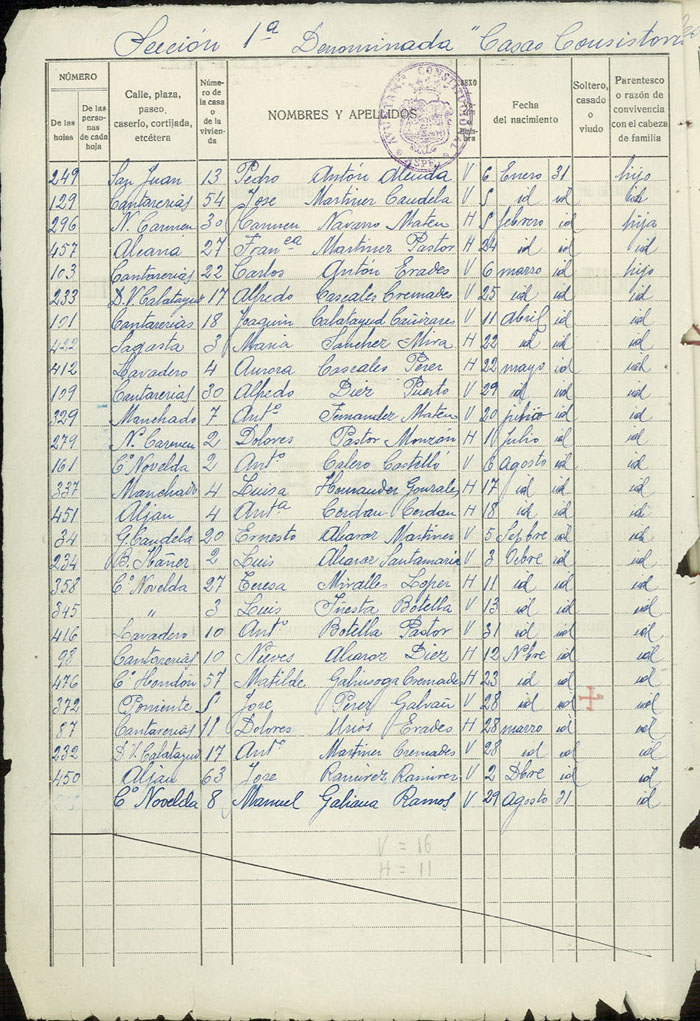 Sección 1ª Denominada "Casas Consistoria
NÚMERO
De las hojas
De las personas de cada hoja
Calle, plaza, paseo, caserío, cortijada, etcétera
Número de la casa o de la vivienda
NOMBRES Y APELLIDOS
SEXO
Fecha del nacimiento
Soltero, casado o viudo
Parentesco o razón de convivencia con el cabeza de familia
249 San Juan 13 Pedro Antón Alenda V 6 Enero 31 hijo
129 Cantarerias 54 Jose Martinez Candela V 5 id id id
296 N. Carmen 30 Carmen Navarro Mateu H 5 febrero id hija
457 Aleana 27 Franca Martinez Pastor H 24 id id id
103 Cantarerias 22 Carlos Antón Erades V 6 marzo id hijo
233 D. V. Calatayud 17 Alfredo Cascales Cremades V 25 id id id
101 Cantarerias 18 Joaquin Calatayud Cañizares V 11 Abril id id
422 Sagasta 3 Maria Sanchez Mira H 22 id id id
412 Lavadero 4 Aurora Cascales Perez H 22 mayo id id
109 Cantarerias 30 Alfredo Diez Puerto V 29 id id id
329 Manchado 7 Antº Fernandez Mateu V 20 junio id id
279 Nª Carmen 2 Dolores Pastor Monzón H 11 julio id id
161 Cº Novelda 2 Antº Calero Castelló V 6 agosto id id
337 Manchado 4 Luisa Hernandez Gonzales H 17 id id id
451 Aljau 4 Antª Cerdan Cerdan H 18 id id id
34 G. Candela 20 Ernesto Alcaraz Martinez V 5 Sepbre id id
234 B. Ibáñez 2 Luis Alcaraz Santamaria V 3 Octbre id id
358 Cº Novelda 27 Teresa Miralles López H 11 id id id
345 " 3 Luis Iniesta Botella V 13 id id id
416 Lavadero 10 Antº Botella Pastor V 31 id id id
98 Cantarerias 10 Nieves Alcaraz Diez H 12 Nobre id id
476 Cº Hondón 57 Matilde Galinsoga Cremades H 23 id id id
372 Poniente 5 Jose Perez Galvañ V 28 id id id
87 Cantarerias 11 Dolores Urios Erades H 28 marzo id id
232 D. V. Calatayud 17 Antº Martinez Cremades V 28 id id id
450 Aljau 63 Jose Ramirez Ramirez V 2 Dbre id id
Cº Novelda 8 Manuel Galiana Ramos V 29 Agosto 31 id
V = 16
H = 11